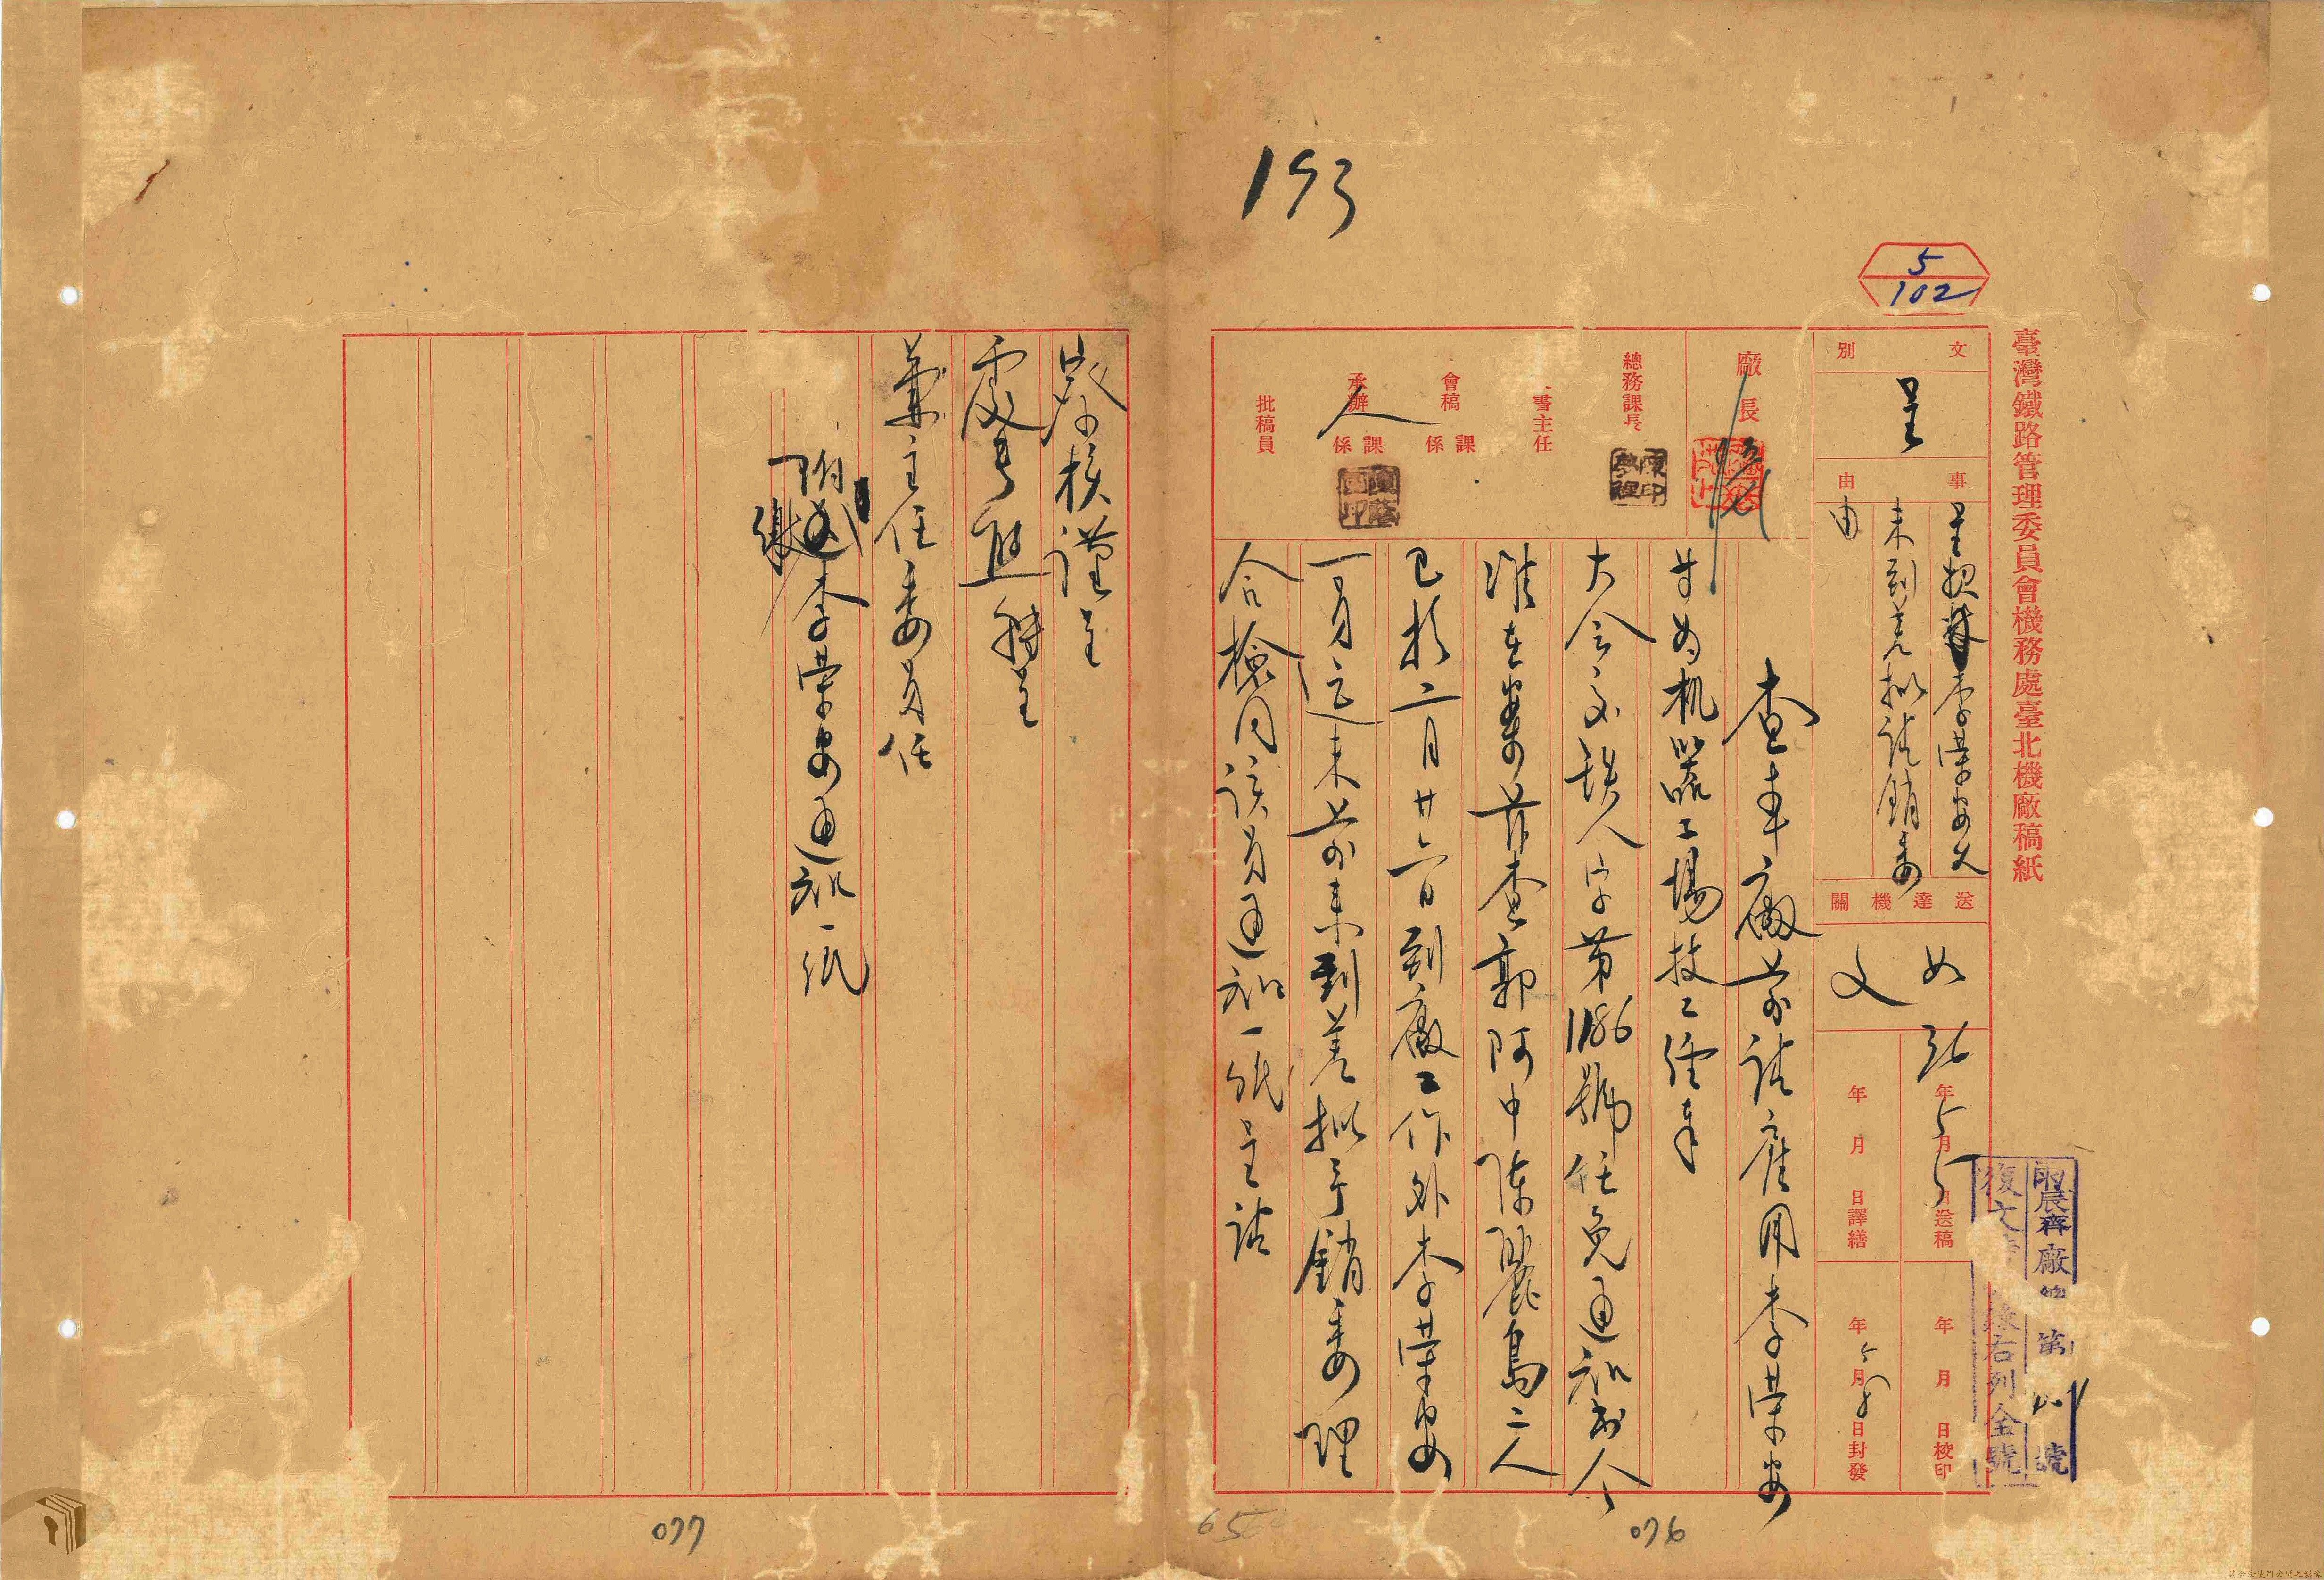 193
5
102
臺灣鐵路管理委員會機務處臺北機廠稿紙
文別
呈
事由
呈報李荣安久
未到差拟請銷委
由
送達機關
如文
35年5月5日送稿
年月日譯繕
年月日校印
年5月8日封發
廠長
總務課長
書主任
會稿
課係
承辦
人
課係
批稿員
廠
第
號
復文
右列全號
查本廠前請雇用李荣安
廿为机器工場技工經奉
大会文戕人字第1186號任免通知書令
准在案茲查郭阿中陳
鳥二人
已於二月廿六日到廠工作外李荣安
一員迄未前来到差拟予銷委理
合檢同該員通知一紙呈請
察核謹呈
處長
轉呈
兼主任委員任
附
繳
李荣安通知一紙
076
077
656